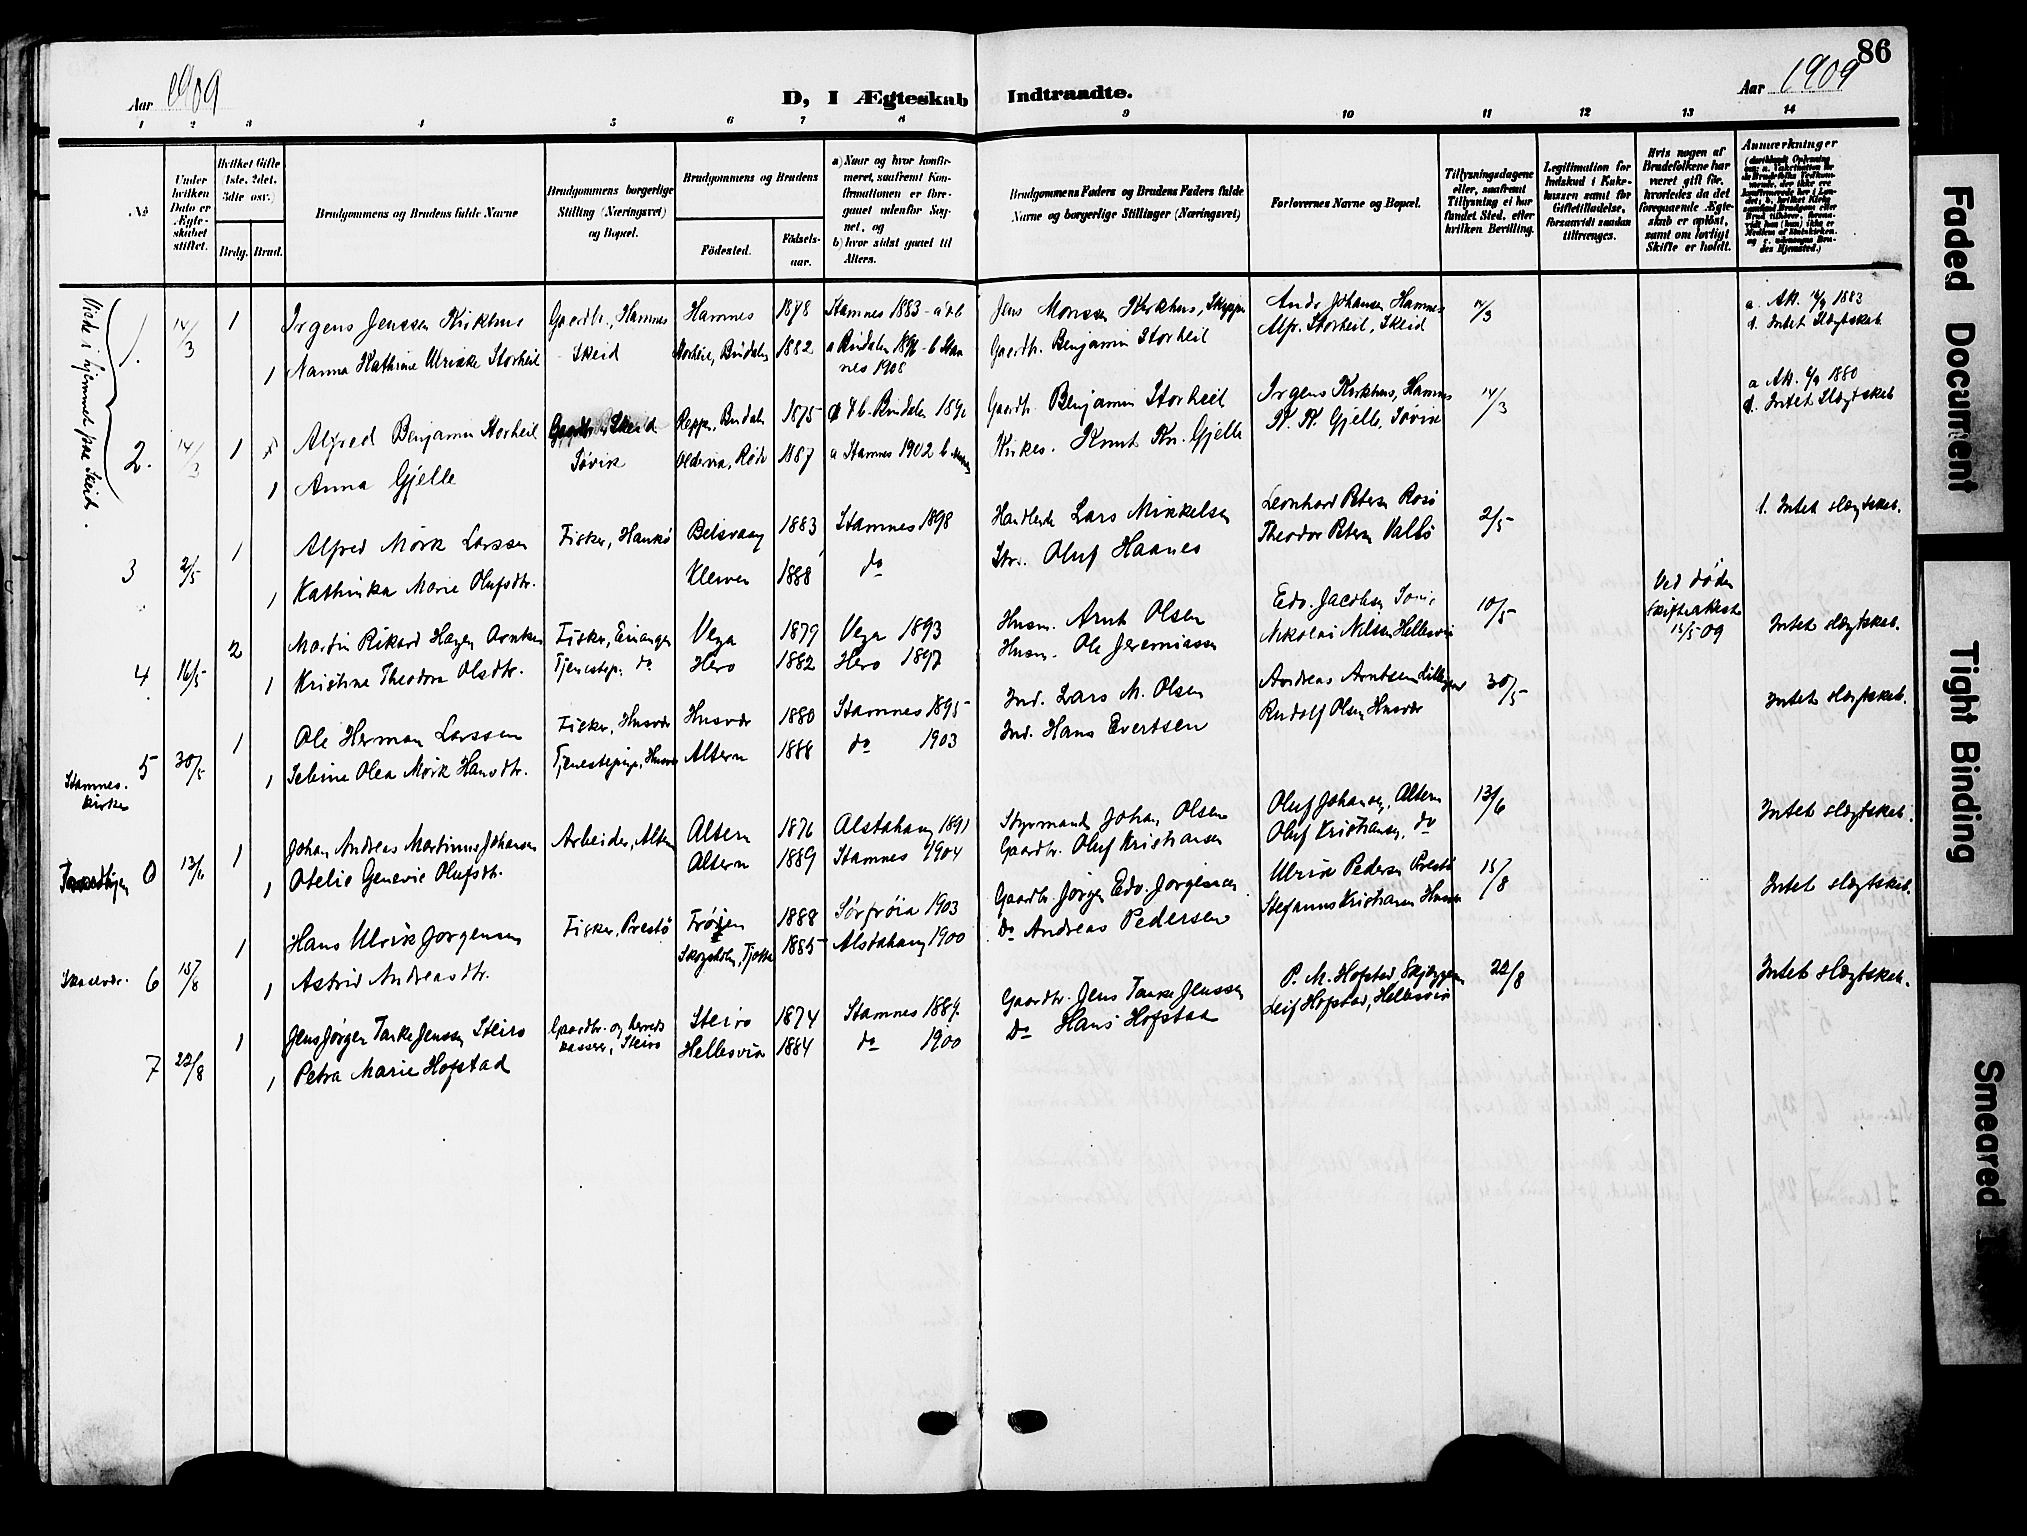 86
Aar 1909
D, I Ægteskab Indtraadte.
Aar 1909
1 2 3 4 5 6 7 8 9 10 11 12 13 14
No
Under hvilken Dato er Ægteskabet stiftet.
Hvilket Gifte (1ste, 2det, 3die osv.)
Brdg. Brud.
Brudgommens og Brudens fulde Navne
Brudgommens borgerlige Stilling (Næringsvei) og Bopæl.
Brudgommens og Brudens
Födested.
Födselsaar.
a) Naar og hvor konfirmeret, saafremt Konfirmationen er foregaaet udenfor Sognet, og
b) hvor sidst gaaet til Alters.
Brudgommens Faders og Brudens Faders fulde Navne og borgerlige Stillinger (Næringsvei)
Forlovernes Navne og Bopæl.
Tillysningsdagene eller, saafremt Tillysning ei har fundet Sted, efter hvilken Bevilling.
Legitimation for Indskud i Enkekassen samt for Giftetilladelse, forsaavidt saadan tiltrænges.
Hvis nogen af Brudefolkene har været gift før, hvorledes da det foregaaende Ægteskab er oplöst, samt om lovligt Skifte er holdt.
Anmærkninger
Viede i hjemmet paa Skeid.
1. 14/3 1 Irgens Jenssen Kirkhus Gaardbr., Hamnes Hamnes 1878 Stamnes 1883 - a & b Jens Monssen Kirkhus, Andr Johansen Hamnes 14/3 a. Att. 1883
1 Nanna Kathrine Ulrikke Storheil Skeid Storheil, Bindalen 1882 a Bindalen 1896 - b Stamnes 1908 Gaardbr. Benjamin Storheil Alfr. Storheil, Skeid d. Intet Slægtskab
2. 14/3 1 Alfred Benjamin Storheil Skeid Reppen, Bindalen 1875 a & b. Bindalen Gaardbr. Benjamin Storheil Irgens Kirkhus, Hamnes 14/3 a Att. 1880
1 Anna Gjelle Søvik 1887 a Stamnes 1902 b Kirkes. Knut Kn. Gjelle K. K. Gjelle, Søvik d. Intet Slægtskab
3 2/5 1 Alfred Mörk Larssen Fisker, Hankö Belsvaag 1883 Stamnes 1898 Handlende Lars Mikkelsen Leonhard Petersen Rosö 2/5 d. Intet slægtskab.
1 Kathinka Marie Olufsdtr. Kleiven 1888 do Oluf Haanes Theodor Petersen
4 16/5 2 Martin Rikard Hagen Arntsen Fisker, Einangen Vega 1879 Vega 1893 Husm. Arnt Olsen Edv. Jacobsen 10/5 Ved döden Skifteattest 15/5 09 Intet slægtskab.
1 Kristine Theodora Olsdtr. Tjenestep. do Herö 1882 Herö 1897 Husm. Ole Jeremiassen Nikolai Nilsen Hellesvik
Stamnes kirke 5 30/5 1 Ole Herman Larssen Fisker, Husvær Husvær 1880 Stamnes 1895 Ind. Lars M. Olsen Andreas Arntsen 30/5 Intet slægtskab.
1 Seline Olea Mörk Hansdtr. Tjenestepige, Husvær Altern 1888 do 1903 Ind. Hans Evertsen Rudolf Olsen Husvær
0 13/6 1 Johan Andreas Martinus Johansen Arbeider, Altern Altern 1876 Alstahaug 1891 Styrmand Johan Olsen Oluf Johansen, Altern 13/6 Intet slægtskab.
1 Otelie Genevie Olufsdtr. Altern 1889 Stamnes 1904 Gaardbr. Oluf Kristiansen Oluf Kristiansen, do
6 15/8 1 Hans Ulrik Jörgensen Fisker, Prestö Fröien 1888 Sörfröia 1903 Gaardbr. Jörgen Edv. Jörgensen Ulrik Pedersen Prestö 15/8 Intet slægtskab.
1 Astrid Andreasdtr. Skogsholm, Tjötta 1885 Alstahaug 1900 Do Andreas Pedersen Stefanus Kristiansen
7 22/8 1 Jens Jörgen Tanke Jenssen Steiro Gaardbr. og herreds kasserer, Steiro Steiro 1874 Stamnes 1889. Gaardbr. Jens Tanke Jenssen P. M. Hofstad 22/8 Intet slægtskab.
1 Petra Marie Hofstad Hellesvik 1884 do 1900 Do Hans Hofstad Leif Hofstad, Hellesvik
Faded Document
Tight Binding
Smeared